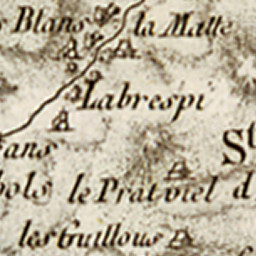 s Blans la Malle
Labrespi
St
ans
bols le Prat viel d
les Guillous